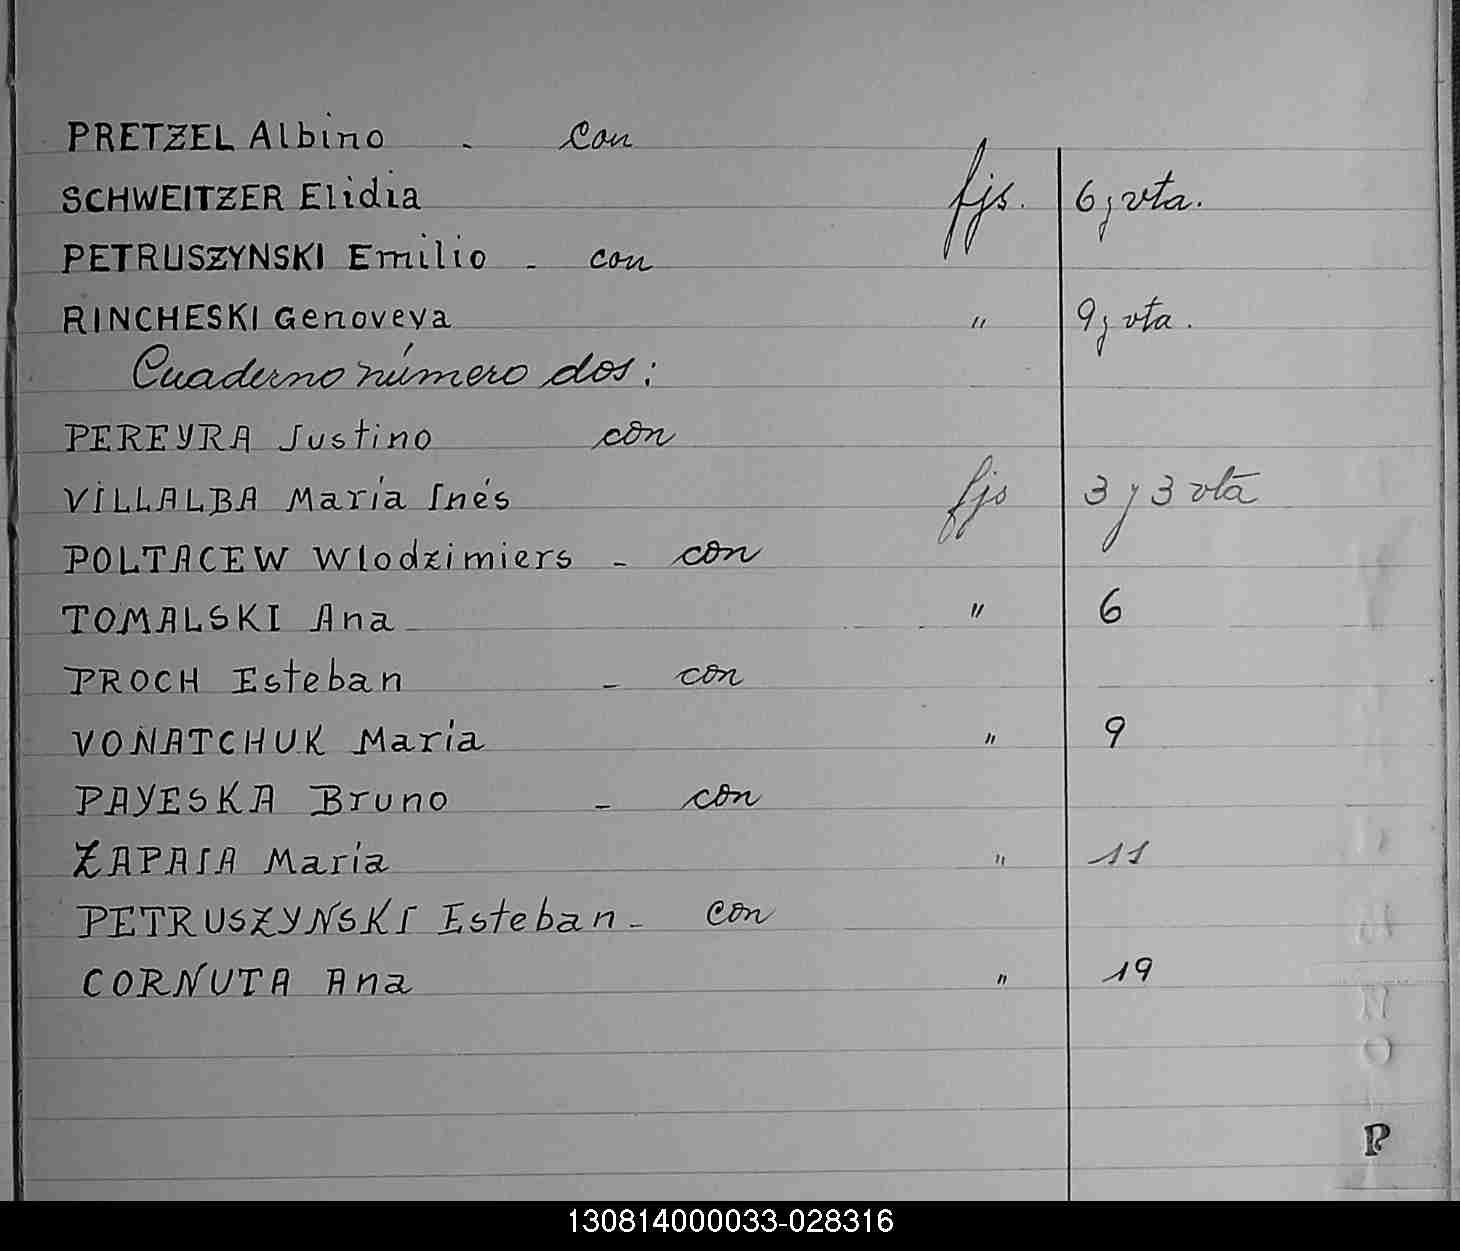 PRETZEL Albino - con
SCHWEITZER Elidia fjs. 6 y vta.
PETRUSZYNSKI Emilio - con
RINCHESKI Genoveva " 9 y vta.
Cuaderno número dos:
PEREYRA Justino con
VILLALBA María Inés fjs 3 y 3 vta
POLTACEW Wlodzimiers - con
TOMALSKI Ana " 6
PROCH Esteban - con
VONATCHUK María " 9
PAYESKA Bruno - con
ZAPAIA María " 11
PETRUSZYNSKI Esteban - con
CORNUTA Ana " 19
P
130814000033-028316